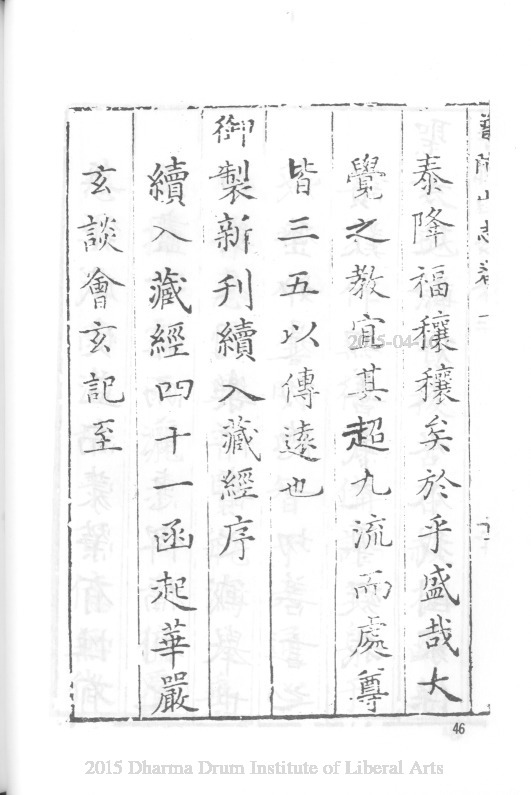 普陀山志卷一
泰隆福穰穰矣於乎盛哉大
覺之教宜其超九流而處尊
皆三五以傳遠也
御製新刊續入藏經序
續入藏經四十一函起華嚴
玄談會玄記至
46
2015 Dharma Drum Institute of Liberal Arts